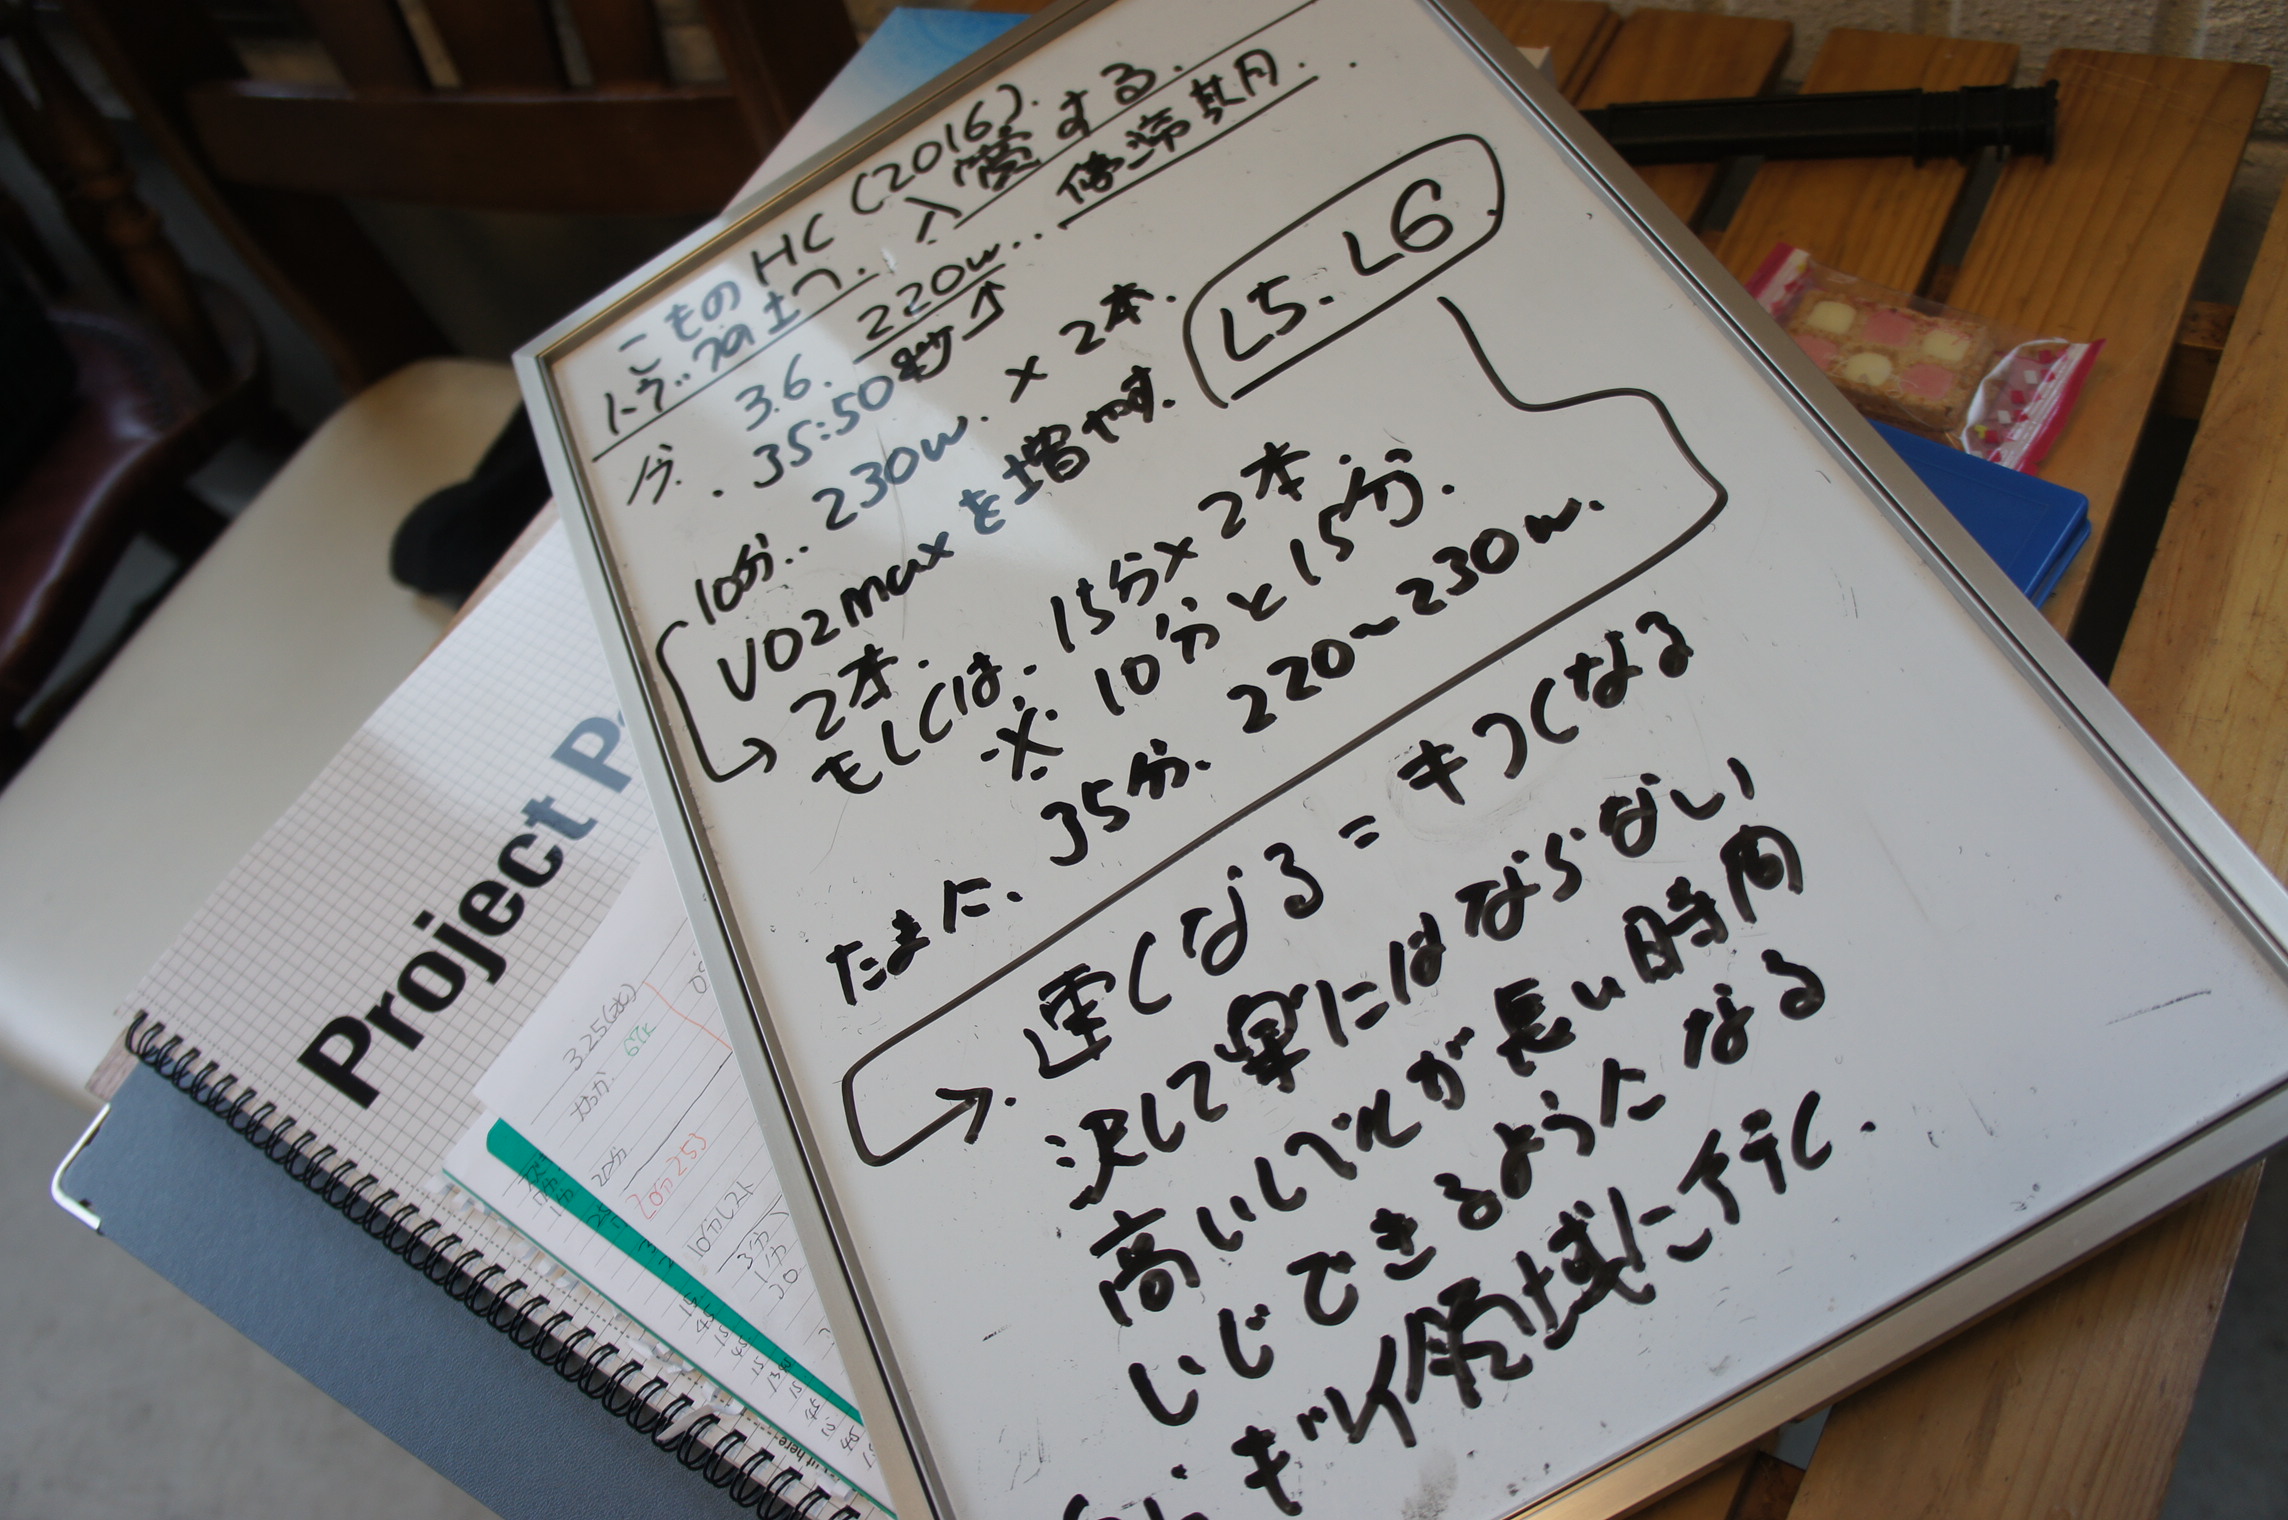 こものHC (2016).
トップ2019. 入賞する.
今. 3.6. 220w... 停滞期..
35:50秒↑
10分.. 230w. × 2本.
VO2maxを増やす. L5. L6
→ 2本.
もしくは. 15分×2本.
※. 10分と15分.
たまに. 35分. 220~230w.
→. 速くなる = キツくなる
決して楽にはならない
高いレベルが長い時間
いじできるようになる
キツイ領域に行く.
Project
3.25(水)
20分
20分253
10分レスト
3分
1分